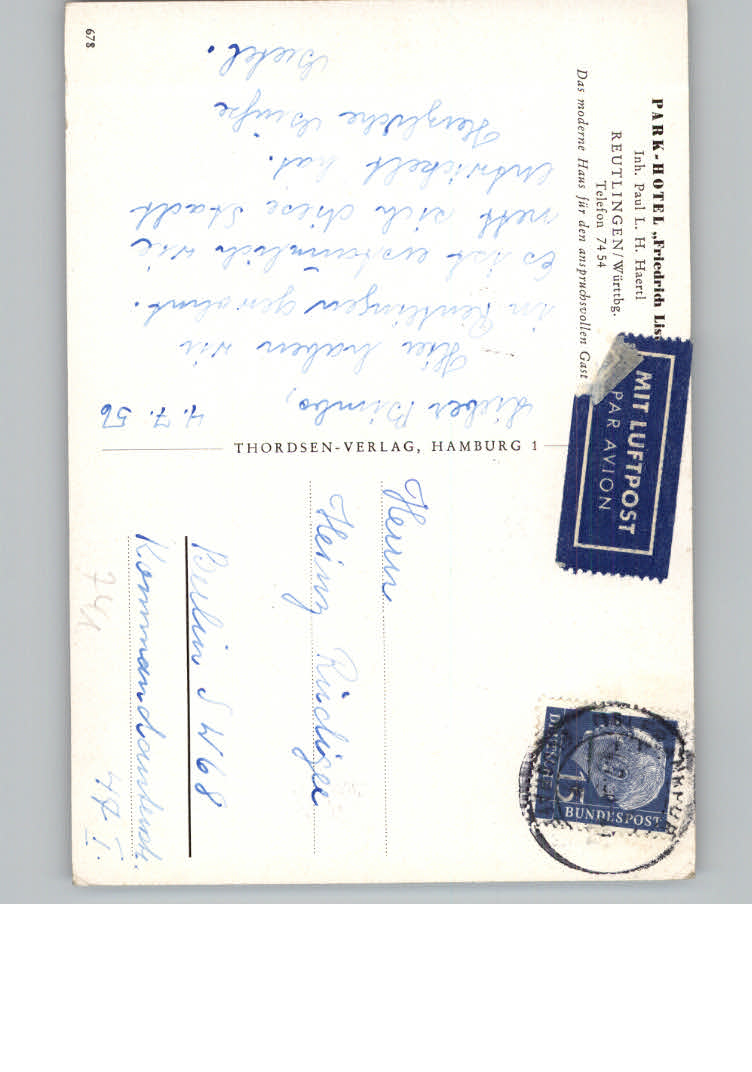 PARK-HOTEL „Friedrich List
Inh. Paul L. H. Haertl
REUTLINGEN/Württbg.
Telefon 7454
Das moderne Haus für den anspruchsvollen Gast
678
4. 7. 56
Lieber Bimbo,
Hier haben wir
in Reutlingen gewohnt.
Es ist erstaunlich wie
nett sich diese Stadt
entwickelt hat.
Herzliche Grüße
THORDSEN-VERLAG, HAMBURG 1
MIT LUFTPOST
PAR AVION
15
BUNDESPOST
Herrn
Heinz Rüdiger
Berlin SW 68
Kommandantenstr.
47 I.
741